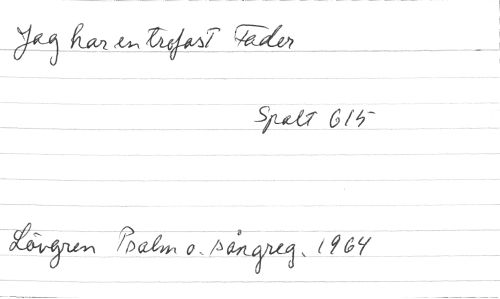 Jag har en trofast Fader
Spalt 615
Lövgren Psalm o. sångreg. 1964